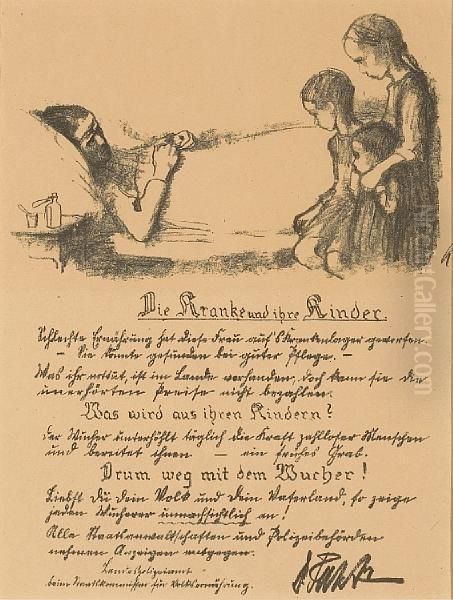 Die Kranke und ihre Kinder.
Schlechte Ernährung hat diese Frau auf's Krankenlager geworfen.
— Sie könnte gesunden bei guter Pflege. —
Was ihr nützt, ist im Lande vorhanden, doch kann sie die
unerhörten Preise nicht bezahlen.
Was wird aus ihren Kindern?
Der Wucher unterhöhlt täglich die Kraft zahlloser Menschen
und bereitet ihnen — ein frühes Grab.
Drum weg mit dem Wucher!
Liebst Du dein Volk und dein Vaterland, so zeige
jeden Wucherer unnachsichtlich an!
Alle Staatsanwaltschaften und Polizeibehörden
nehmen Anzeigen entgegen.
Landespolizeiamt
beim Staatskommissar für Volksernährung.